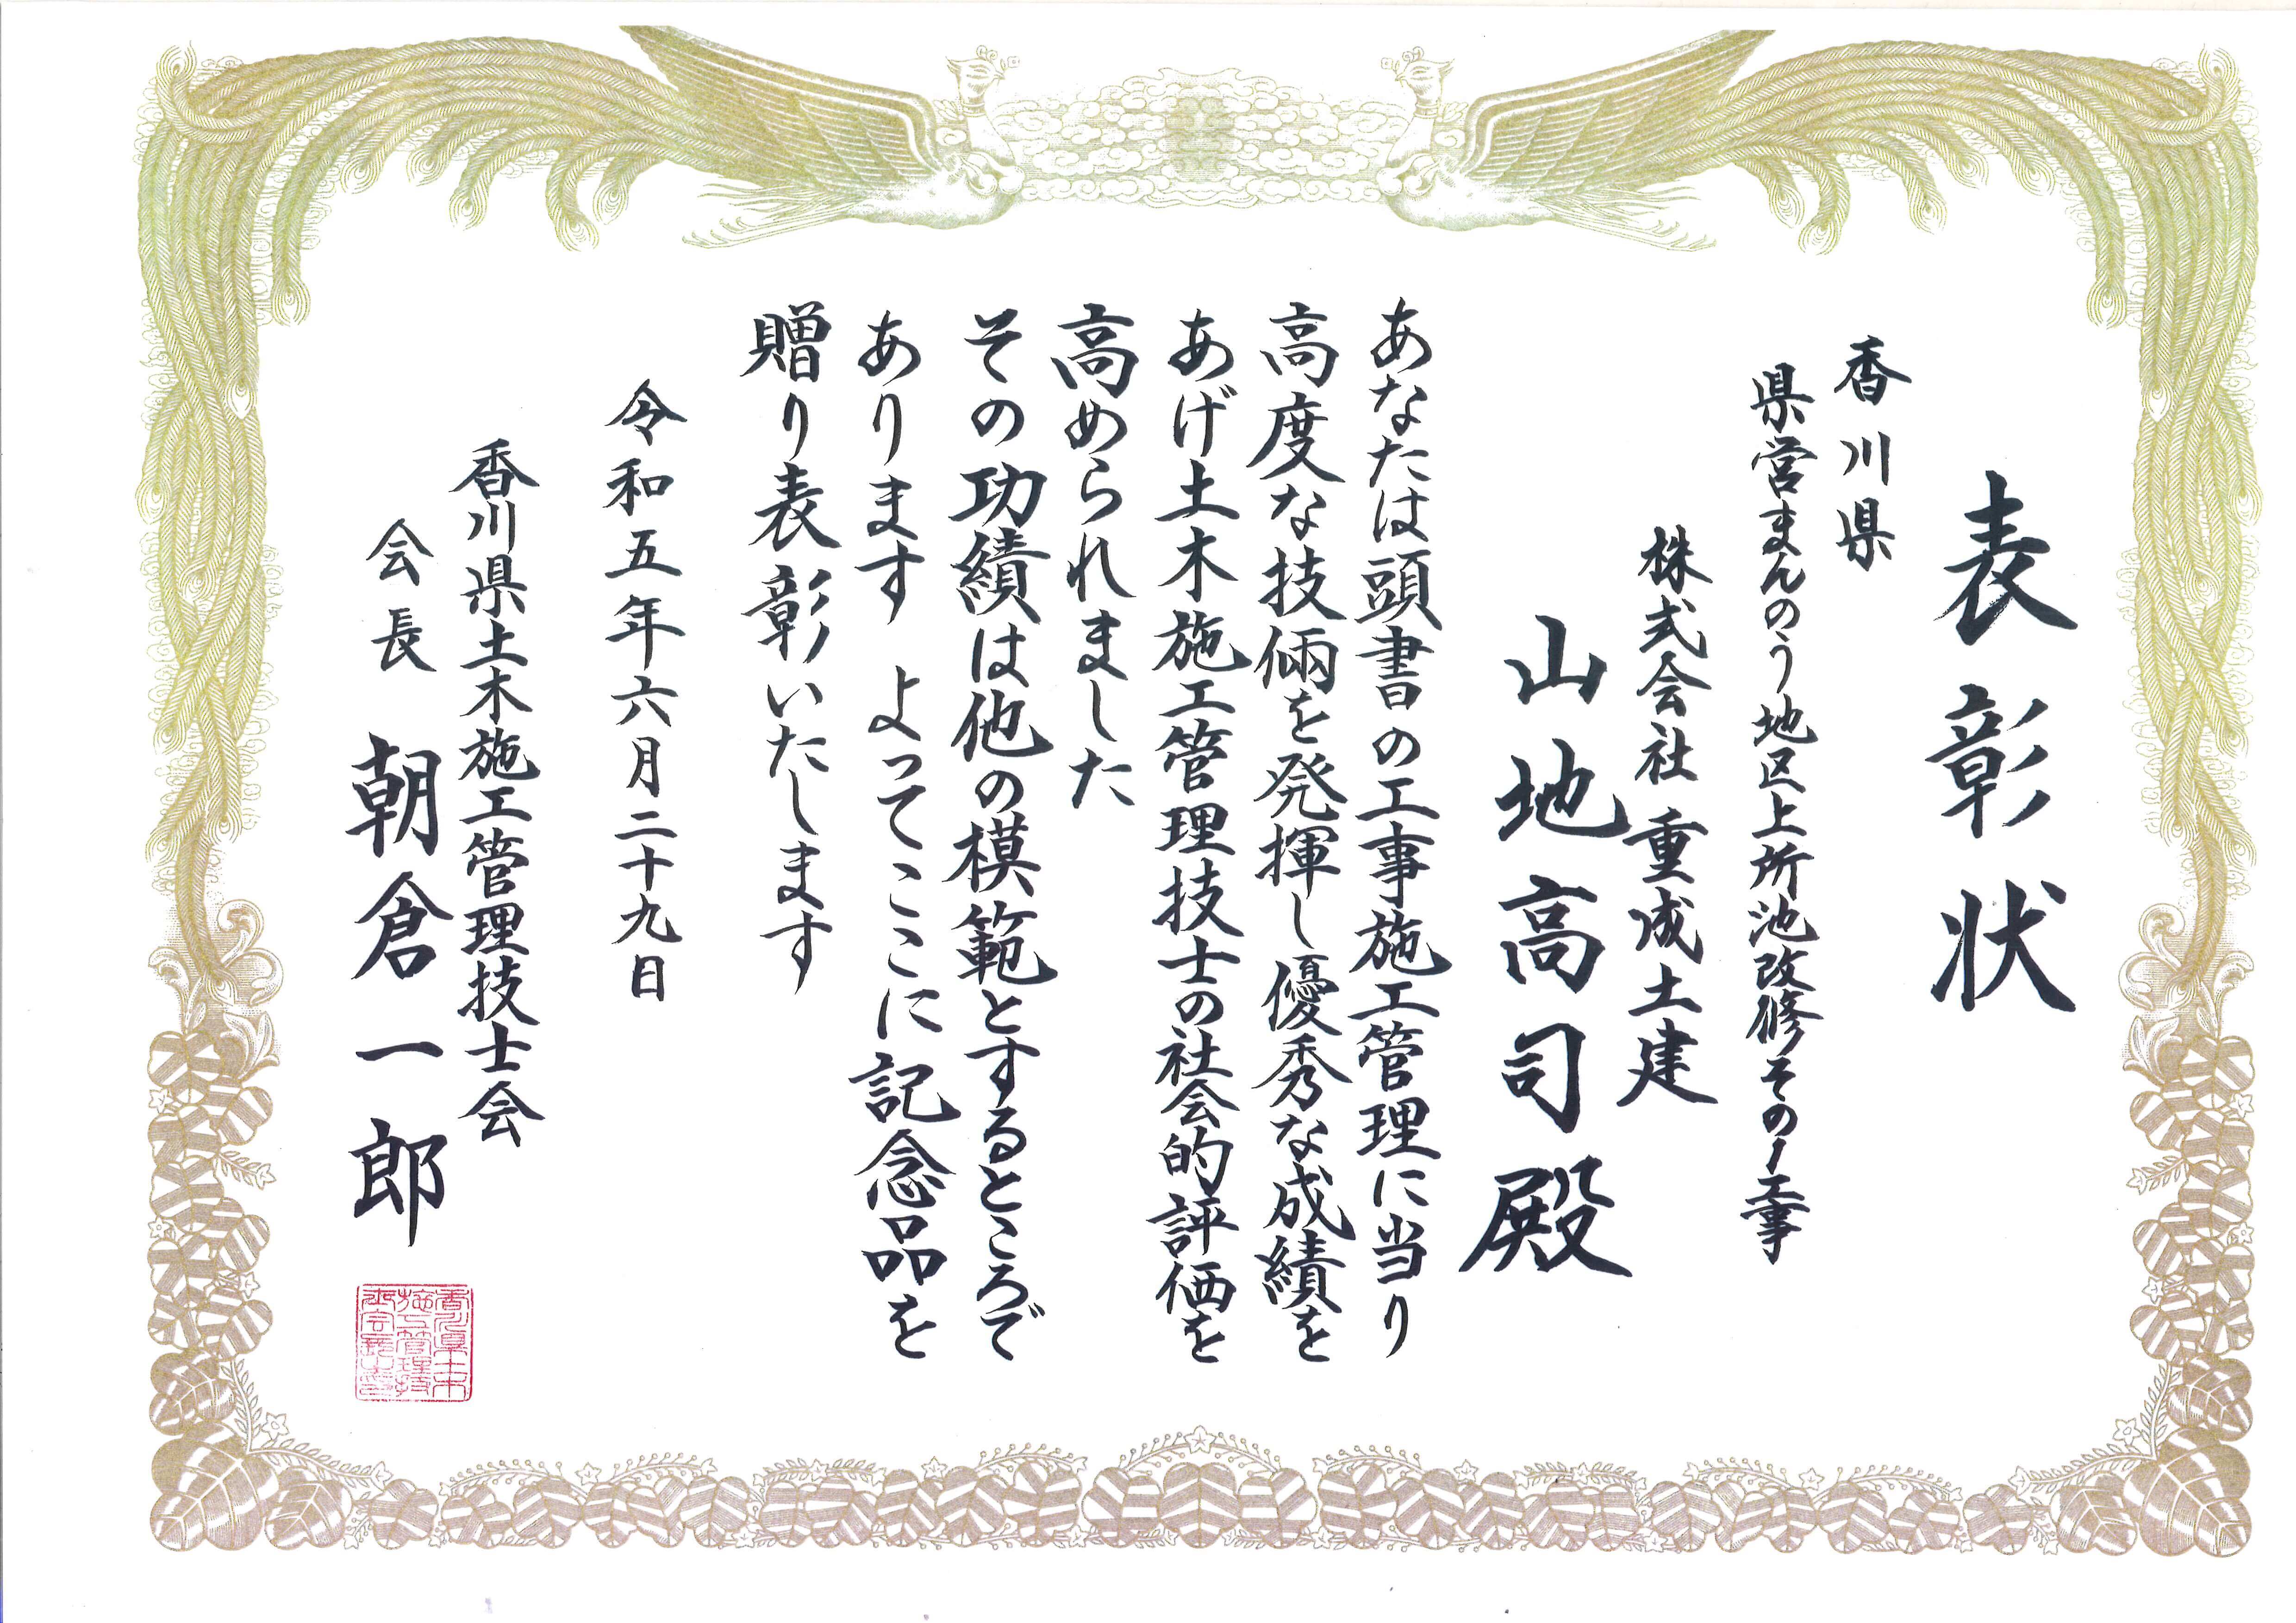 表彰状
香川県
県営まんのう地区上所池改修その1工事
株式会社 重成土建
山地高司殿
あなたは頭書の工事施工管理に当り
高度な技倆を発揮し優秀な成績を
あげ土木施工管理技士の社会的評価を
高められました
その功績は他の模範とするところで
あります よってここに記念品を
贈り表彰いたします
令和五年六月二十九日
香川県土木施工管理技士会
会長 朝倉一郎
香川県土木
施工管理技
士会長之印